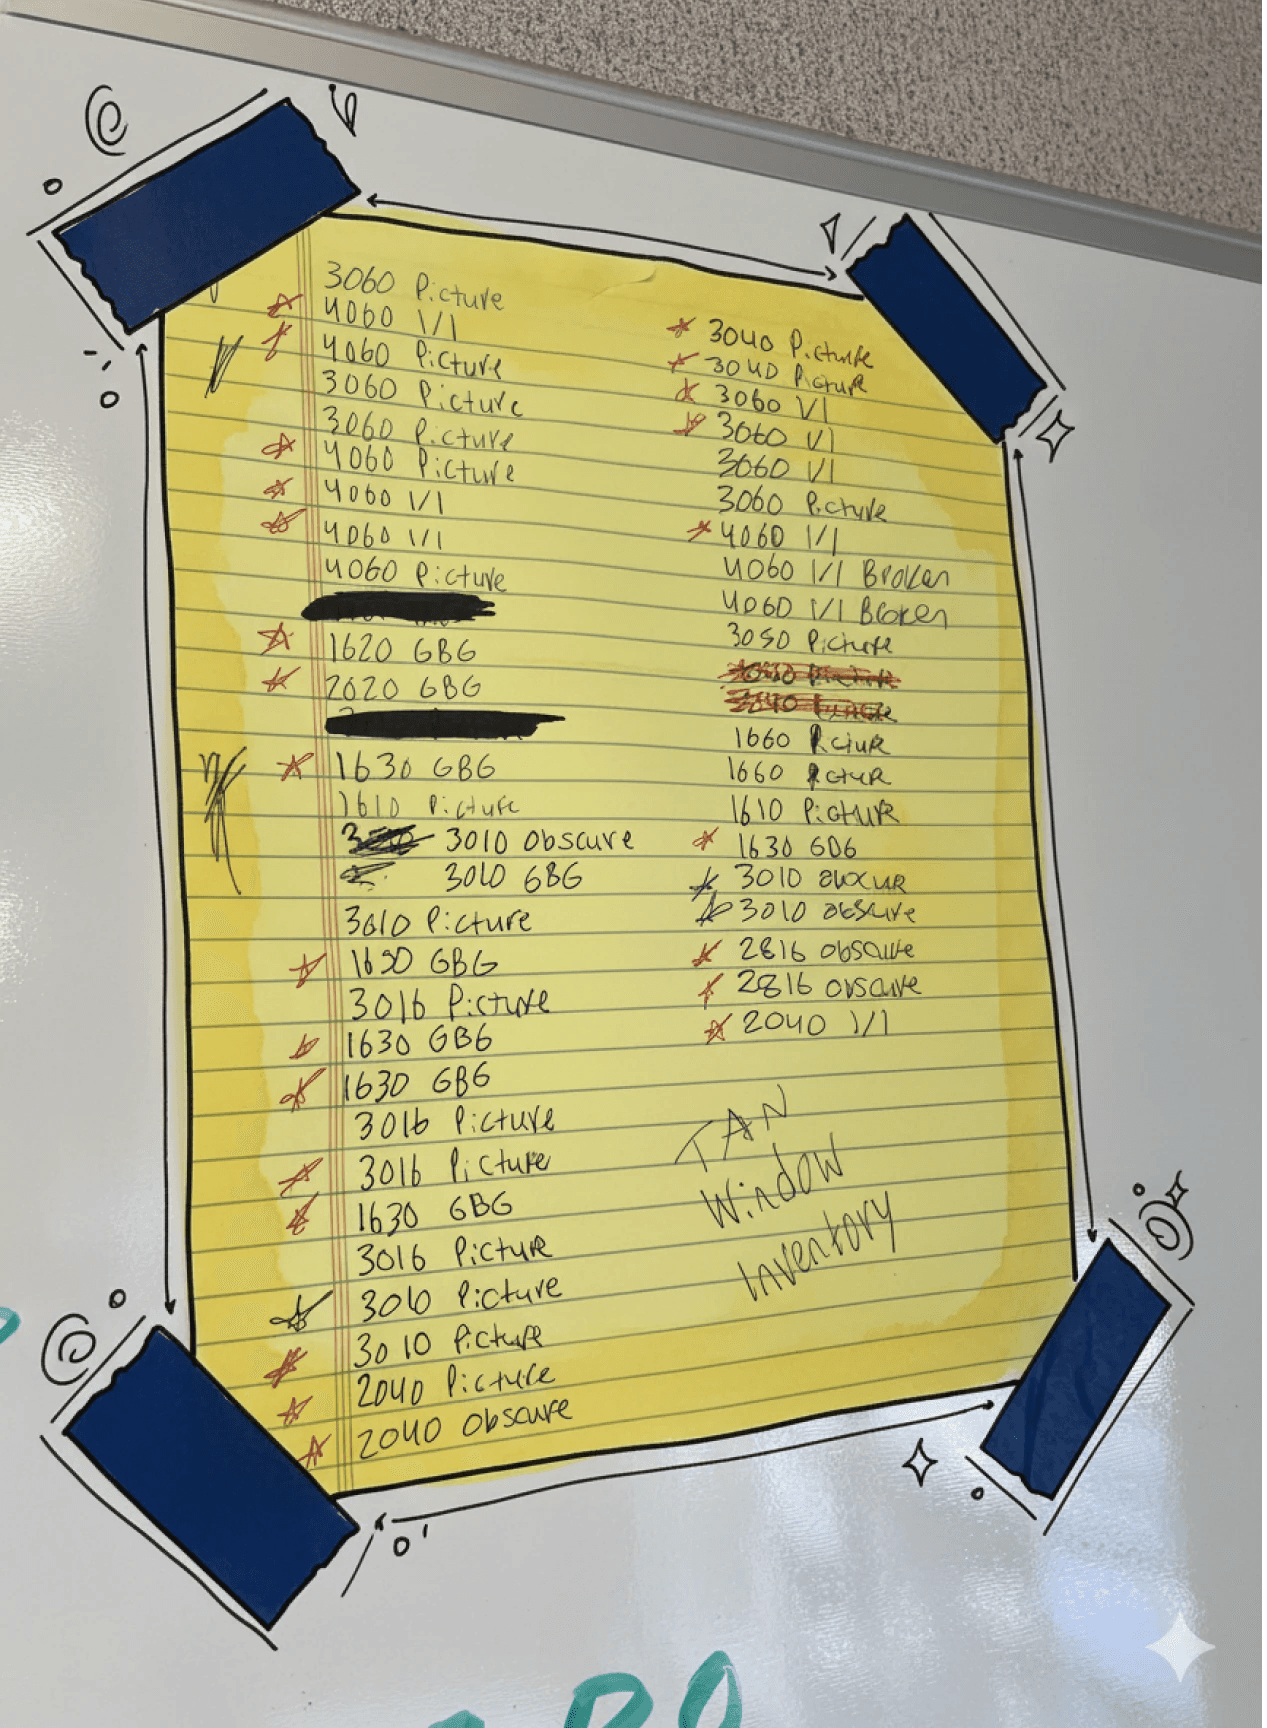 3060 Picture
4060 1/1
4060 Picture
3060 Picture
3060 Picture
4060 Picture
4060 1/1
4060 1/1
4060 Picture
1620 GBG
2020 GBG
1630 GBG
1610 Picture
3010 Obscure
3010 GBG
3010 Picture
1630 GBG
3016 Picture
1630 GBG
1630 GBG
3016 Picture
3016 Picture
1630 GBG
3016 Picture
3010 Picture
2040 Picture
2040 Obscure
3040 Picture
3040 Picture
3060 1/1
3060 1/1
3060 1/1
3060 Picture
4060 1/1
4060 1/1 Broken
4060 1/1 Broken
3050 Picture
1660 Picture
1660 Picture
1610 Picture
1630
3010
3010 obscure
2816 obscure
2816 obscure
2040 1/1
TAN
Window
Inventory